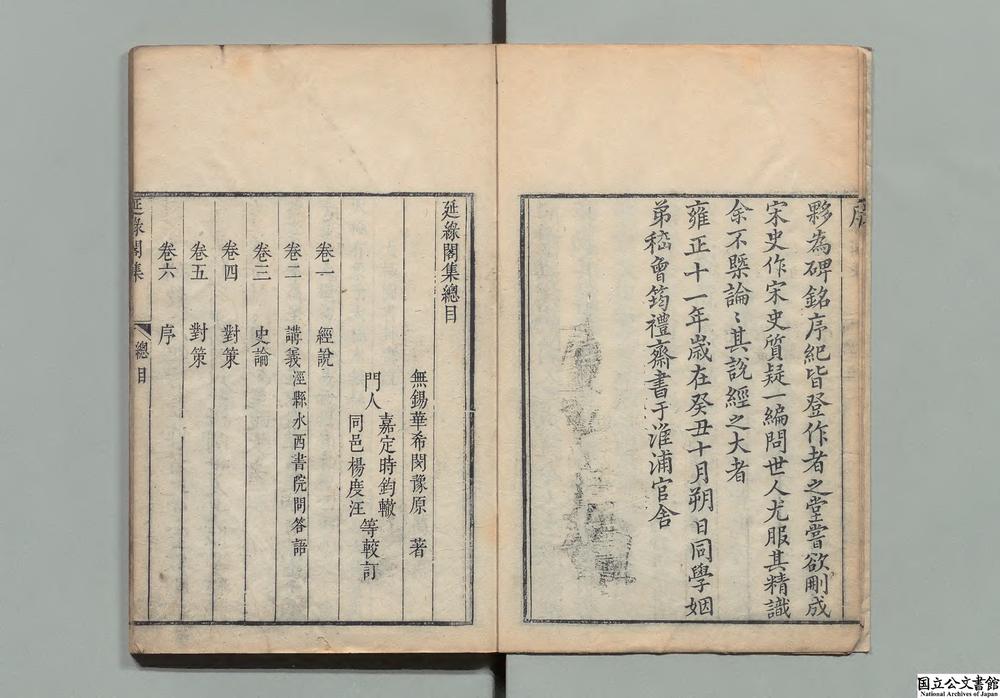 序
夥為碑銘序紀皆登作者之堂嘗欲刪成
宋史作宋史質疑一編問世人尤服其精識
余不槩論〻其說經之大者
雍正十一年歲在癸丑十月朔日同學姻
弟嵇曾筠禮齋書于淮浦官舍
延綠閣集總目
無錫華希閔豫原 著
門人
嘉定時鈞轍
同邑楊度汪
等較訂
卷一 經說
卷二 講義 涇縣水西書院問答語
卷三 史論
卷四 對策
卷五 對策
卷六 序
延綠閣集 總目
国立公文書館
National Archives of Japan